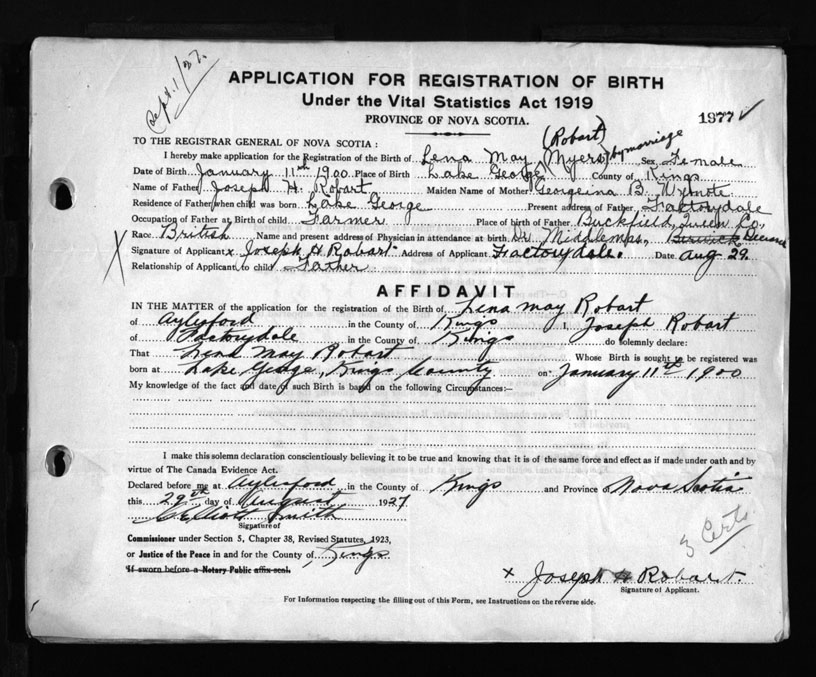 Sept. 1/27.
APPLICATION FOR REGISTRATION OF BIRTH
Under the Vital Statistics Act 1919
PROVINCE OF NOVA SCOTIA.
1977 ✓
TO THE REGISTRAR GENERAL OF NOVA SCOTIA:
(Robart)
I hereby make application for the Registration of the Birth of Lena May Myers by marriage Sex Female
Date of Birth January 11th 1900 Place of Birth Lake George County of Kings
Name of Father Joseph H. Robart Maiden Name of Mother Georgeina B.
Residence of Father when child was born Lake George Present address of Father Factorydale
Occupation of Father at Birth of child Farmer Place of birth of Father Buckfield, Queen Co,
Race British Name and present address of Physician in attendance at birth Dr. Middlemas, Berwick Deceased
Signature of Applicant x Joseph H Robart Address of Applicant Factorydale. Date Aug 29.
Relationship of Applicant to child Father
AFFIDAVIT
IN THE MATTER of the application for the registration of the Birth of Lena May Robart
of Aylesford in the County of Kings I, Joseph Robart
of Factorydale in the County of Kings do solemnly declare:
That Lena May Robart Whose Birth is sought to be registered was
born at Lake George, Kings County on January 11th 1900
My knowledge of the fact and date of such Birth is based on the following Circumstances:—
I make this solemn declaration conscientiously believing it to be true and knowing that it is of the same force and effect as if made under oath and by
virtue of The Canada Evidence Act.
Declared before me at Aylesford in the County of Kings and Province of Nova Scotia
this 29th day of August 1927
C Elliott Smith
Signature of
Commissioner under Section 5, Chapter 38, Revised Statutes, 1923,
or Justice of the Peace in and for the County of Kings
If sworn before a Notary Public affix seal.
3 Certs
x Joseph H Robart.
Signature of Applicant.
For Information respecting the filling out of this Form, see Instructions on the reverse side.